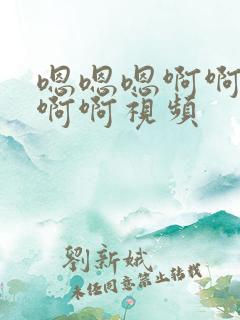 嗯嗯嗯啊啊
啊啊視頻
劉新娥
未經同意禁止轉載